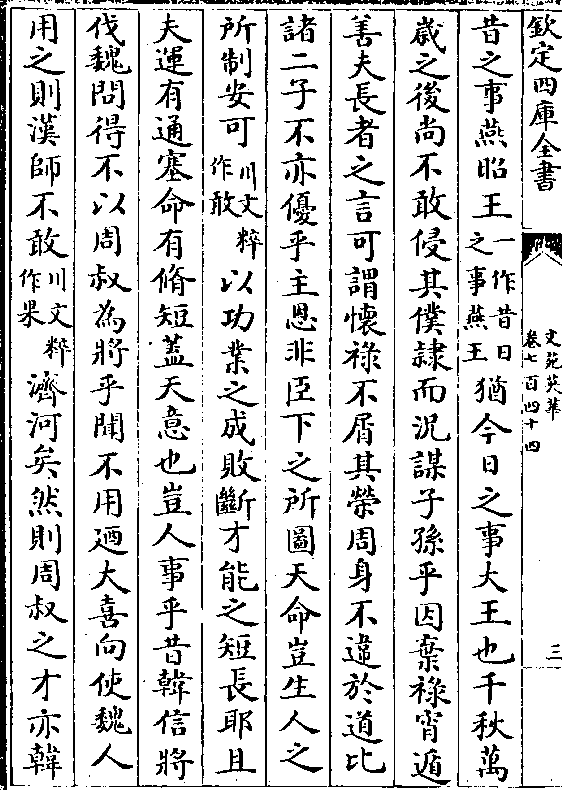 欽定四庫全書
文苑英華
卷七百四十四
三
昔之事燕昭王一作昔日之事燕王猶今日之事大王也千秋萬
歲之後尚不敢侵其僕隷而況謀子孫乎因棄祿宵遁
善夫長者之言可謂懷祿不屑其榮周身不違於道比
諸二子不亦優乎主恩非臣下之所圖天命豈生人之
所制安可川文粹作敢以功業之成敗斷才能之短長耶且
夫運有通塞命有脩短蓋天意也豈人事乎昔韓信將
伐魏問得不以周叔為將乎聞不用廼大喜向使魏人
用之則漢師不敢川文粹作果濟河矣然則周叔之才亦韓